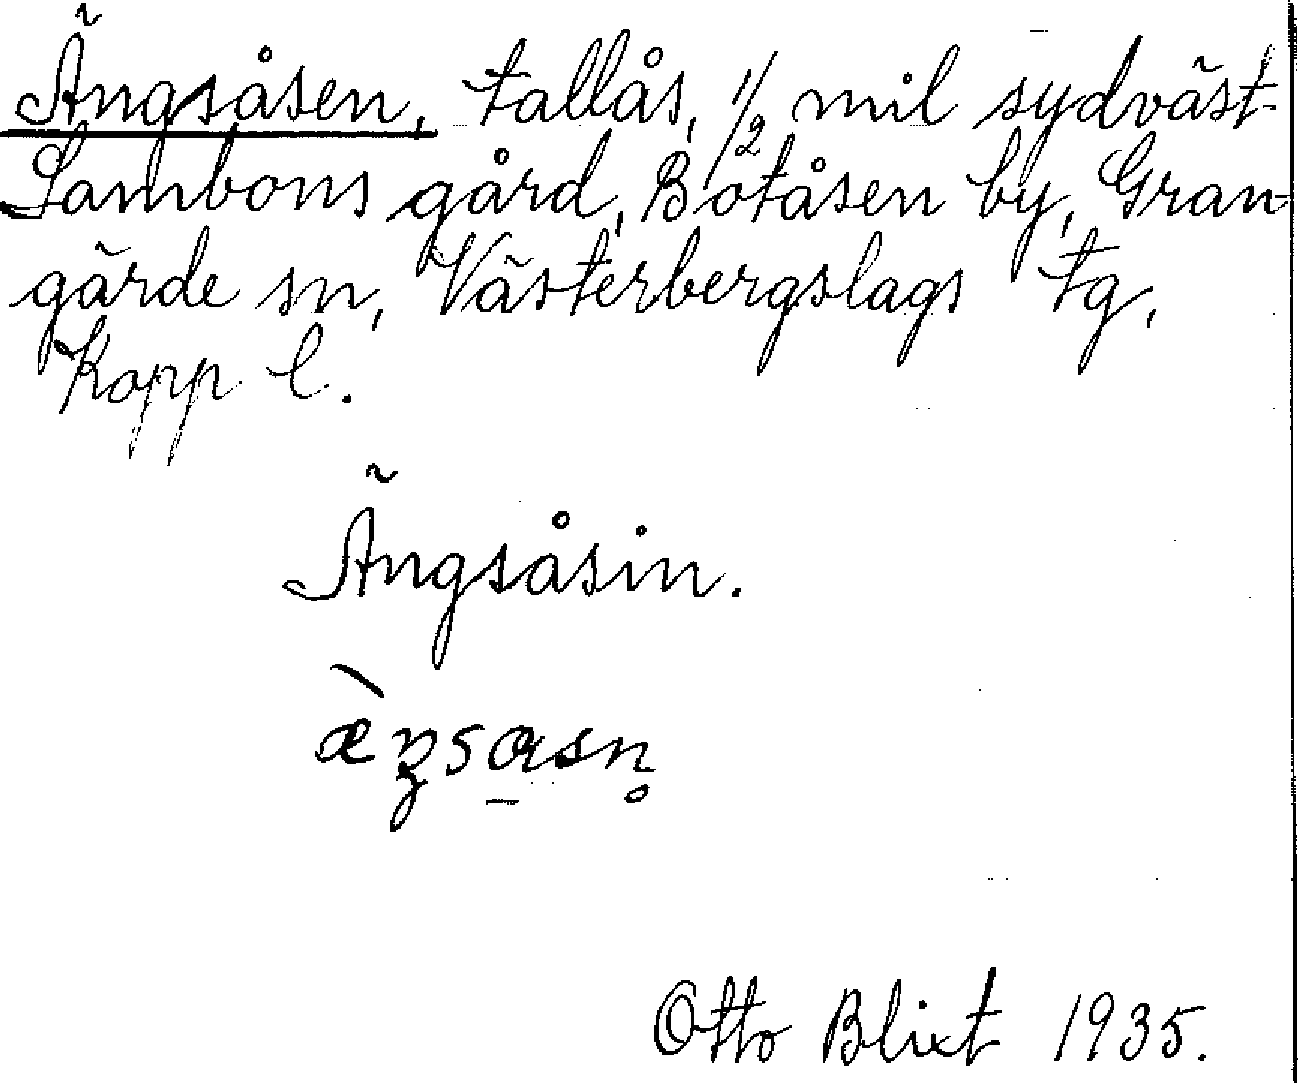 Ängsåsen, tallås, 1/2 mil sydväst
Lambons gård, Botåsen by, Gran-
gärde sn, Västerbergslags tg,
Kopp l.
Ängsåsin.
æ̀ŋsɑ̱sn̥
Otto Blixt 1935.